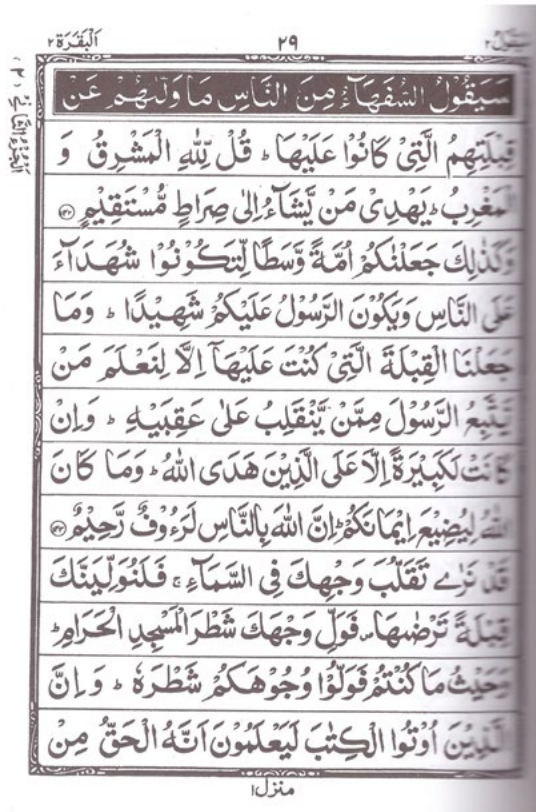 سَيَقُوْلُ ٢ ٢٩ اَلْبَقَرَة ٢
اَلْجُزْءُ الثَّانِيْ (٢)
سَيَقُوْلُ السُّفَهَآءُ مِنَ النَّاسِ مَا وَلّٰىهُمْ عَنْ
قِبْلَتِهِمُ الَّتِيْ كَانُوْا عَلَيْهَا ؕ قُلْ لِّلّٰهِ الْمَشْرِقُ وَ
الْمَغْرِبُ ؕ يَهْدِيْ مَنْ يَّشَآءُ اِلٰى صِرَاطٍ مُّسْتَقِيْمٍ ﴿۱۴۲﴾
وَكَذٰلِكَ جَعَلْنٰكُمْ اُمَّةً وَّسَطًا لِّتَكُوْنُوْا شُهَدَآءَ
عَلَى النَّاسِ وَيَكُوْنَ الرَّسُوْلُ عَلَيْكُمْ شَهِيْدًا ؕ وَمَا
جَعَلْنَا الْقِبْلَةَ الَّتِيْ كُنْتَ عَلَيْهَآ اِلَّا لِنَعْلَمَ مَنْ
يَّتَّبِعُ الرَّسُوْلَ مِمَّنْ يَّنْقَلِبُ عَلٰى عَقِبَيْهِ ؕ وَاِنْ
كَانَتْ لَكَبِيْرَةً اِلَّا عَلَى الَّذِيْنَ هَدَى اللّٰهُ ؕ وَمَا كَانَ
اللّٰهُ لِيُضِيْعَ اِيْمَانَكُمْ ؕ اِنَّ اللّٰهَ بِالنَّاسِ لَرَءُوْفٌ رَّحِيْمٌ ﴿۱۴۳﴾
قَدْ نَرٰى تَقَلُّبَ وَجْهِكَ فِي السَّمَآءِ ۚ فَلَنُوَلِّيَنَّكَ
قِبْلَةً تَرْضٰىهَا ۪ فَوَلِّ وَجْهَكَ شَطْرَ الْمَسْجِدِ الْحَرَامِ ؕ
وَحَيْثُ مَا كُنْتُمْ فَوَلُّوْا وُجُوْهَكُمْ شَطْرَهٗ ؕ وَاِنَّ
الَّذِيْنَ اُوْتُوا الْكِتٰبَ لَيَعْلَمُوْنَ اَنَّهُ الْحَقُّ مِنْ
منزل١